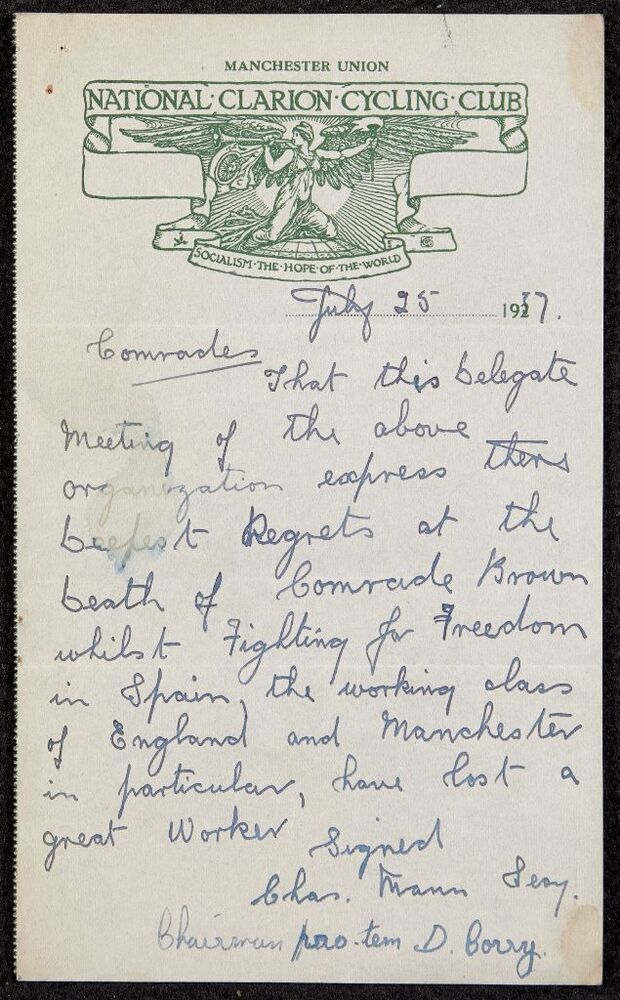 MANCHESTER UNION
NATIONAL · CLARION · CYCLING · CLUB
SOCIALISM · THE · HOPE · OF · THE · WORLD
July 25 1937.
Comrades
That this Delegate
Meeting of the above
organization express there
Deepest Regrets at the
Death of Comrade Brown
whilst Fighting for Freedom
in Spain, the working class
of England and Manchester
in particular, have lost a
great Worker
Signed
Chas. Mann Secy.
Chairman pro-tem D. Corry.